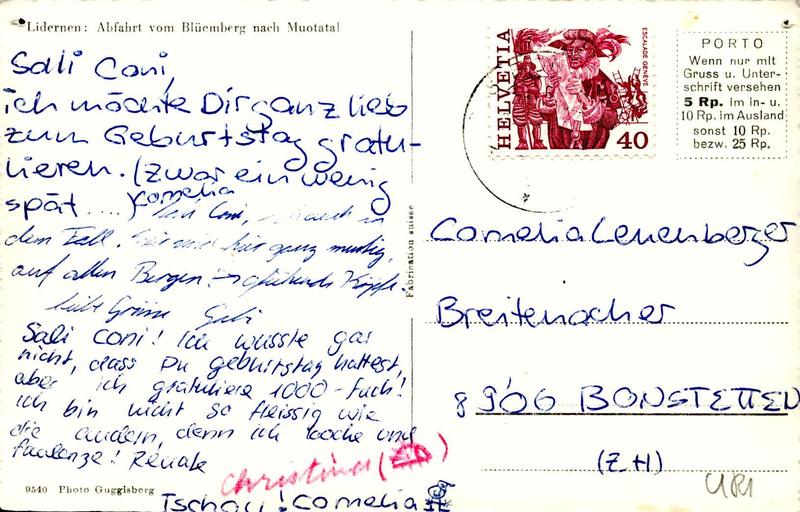 Lidernen: Abfahrt vom Blüemberg nach Muotatal
Sali Coni,
ich möchte Dir ganz lieb
zum Geburtstag gratu-
lieren. (zwar ein wenig
spät ....) Cornelia
Coni,
dem Fall. hier ganz
auf allen Bergen. →
liebe Grüsse Gabi
Sali Coni! Ich wusste gar
nicht, dass Du geburtstag hattest,
aber ich gratuliere 1000-fach!
Ich bin nicht so fleissig wie
die andern, denn ich koche und
faulenze! Renate
Christina
Tschau! Cornelia
9540 Photo Guggisberg
Fabrication suisse
HELVETIA
ESCALADE GENÈVE
40
PORTO
Wenn nur mit
Gruss u. Unter-
schrift versehen
5 Rp. im in- u.
10 Rp. im Ausland
sonst 10 Rp.
bezw. 25 Rp.
Cornelia Leuenberger
Breitenacher
8906 BONSTETTEN
(ZH)
URI